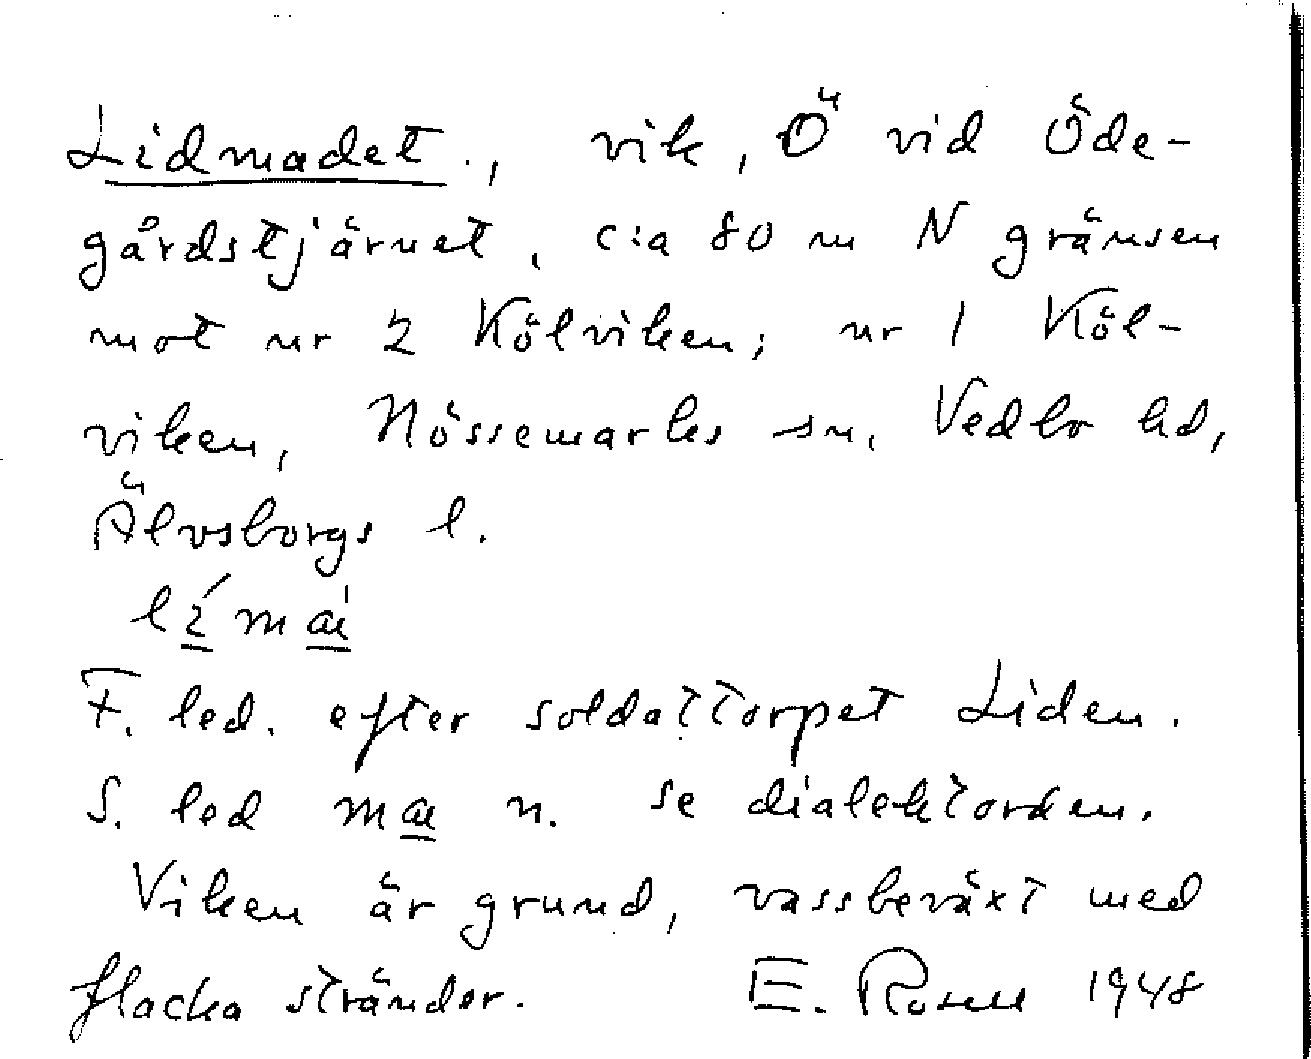 Lidmadet., vik, Ö vid Öde-
gårdstjärnet, c:a 80 m N gränsen
mot nr 2 Kölviken; nr 1 Köl-
viken, Nössemarks sn, Vedbo hd,
Älvsborgs l.
F. led. efter soldattorpet Liden.
S. led mæ n. se dialektorden.
Viken är grund, vassbeväxt med
flacka stränder. E. Rosell 1948